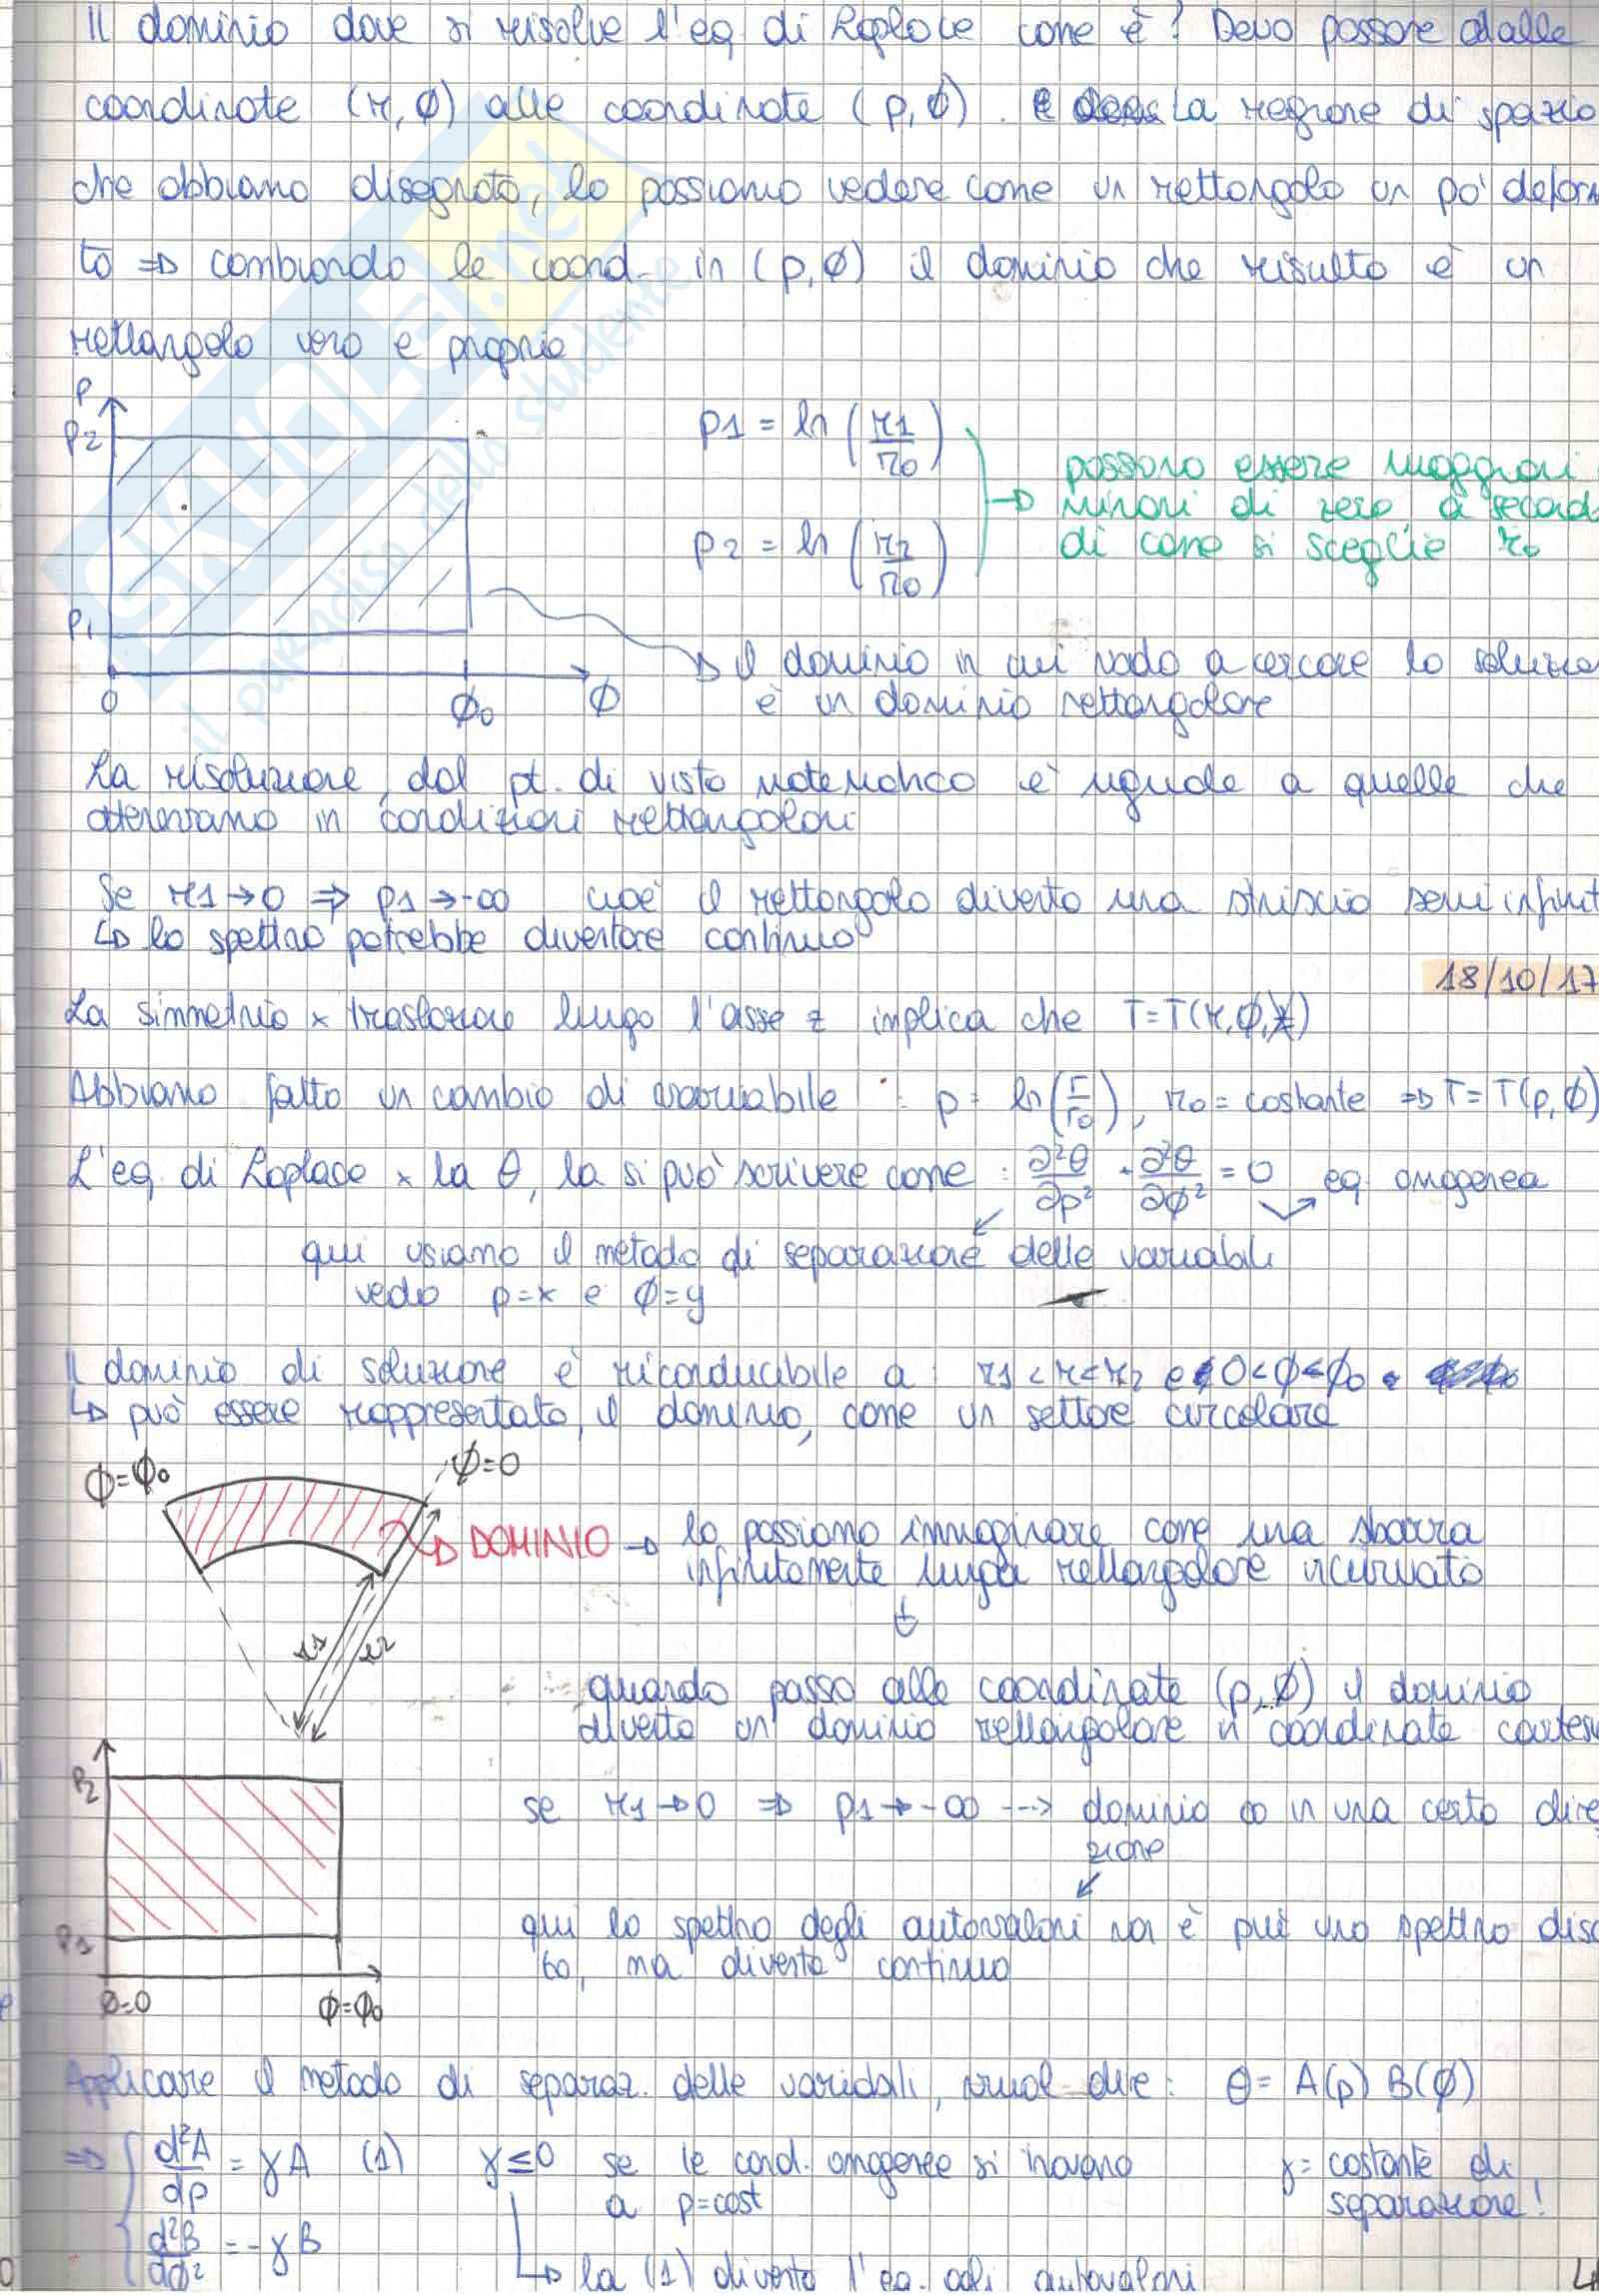 Il dominio dove si risolve l'eq di Laplace come è? Devo passare dalle
coordinate (r, φ) alle coordinate (ρ, φ). La regione di spazio
che abbiamo disegnato, lo possiamo vedere come un rettangolo un po' deforma
to => cambiando le coord. in (ρ, φ) il dominio che risulta è un
rettangolo vero e proprio
ρ
ρ2
ρ1
0
φ0
φ
ρ1 = ln (r1/r0)
ρ2 = ln (r2/r0)
possono essere maggiori
minori di zero a second
di come si sceglie r0
il dominio in cui vado a cercare la soluzio
è un dominio rettangolare
La risoluzione, dal pt. di vista matematico è uguale a quelle che
ottenevamo in condizioni rettangolari
Se r1→0 ⇒ ρ1→-∞ cioè il rettangolo diventa una striscia semi infinit
↳ lo spettro potrebbe diventare continuo
18/10/17
La simmetria x traslazione lungo l'asse z implica che T=T(r, φ, z)
Abbiamo fatto un cambio di variabile : ρ = ln(r/r0), r0 = costante => T = T(ρ, φ)
L'eq. di Laplace x la θ, la si può scrivere come : ∂²θ/∂ρ² + ∂²θ/∂φ² = 0 eq omogenea
qui usiamo il metodo di separazione delle variabili
vedo ρ=x e φ=y
Il dominio di soluzione è riconducibile a : r1 < r < r2 e 0<φ<φ0
↳ può essere rappresentato, il dominio, come un settore circolare
φ=φ0
φ=0
DOMINIO → lo possiamo immaginare come una sbarra
infinitamente lunga rettangolare incurvata
r1
r2
quando passo alle coordinate (ρ, φ) il dominio
diventa un dominio rettangolare in coordinate cartesi
ρ2
ρ1
φ=0
φ=φ0
se r1→0 ⇒ ρ1→-∞ --> dominio ∞ in una certa dire
zione
qui lo spettro degli autovalori non è più uno spettro disc
to, ma diventa continuo
Applicare il metodo di separaz. delle variabili, vuol dire: θ = A(ρ) B(φ)
=> d²A/dρ = γA (1) γ≤0 se le cond. omogenee si trovano
a ρ=cost
γ= costante di
separazione!
d²B/dφ² = -γB
↳ la (1) diventa l'eq. agli autovalori